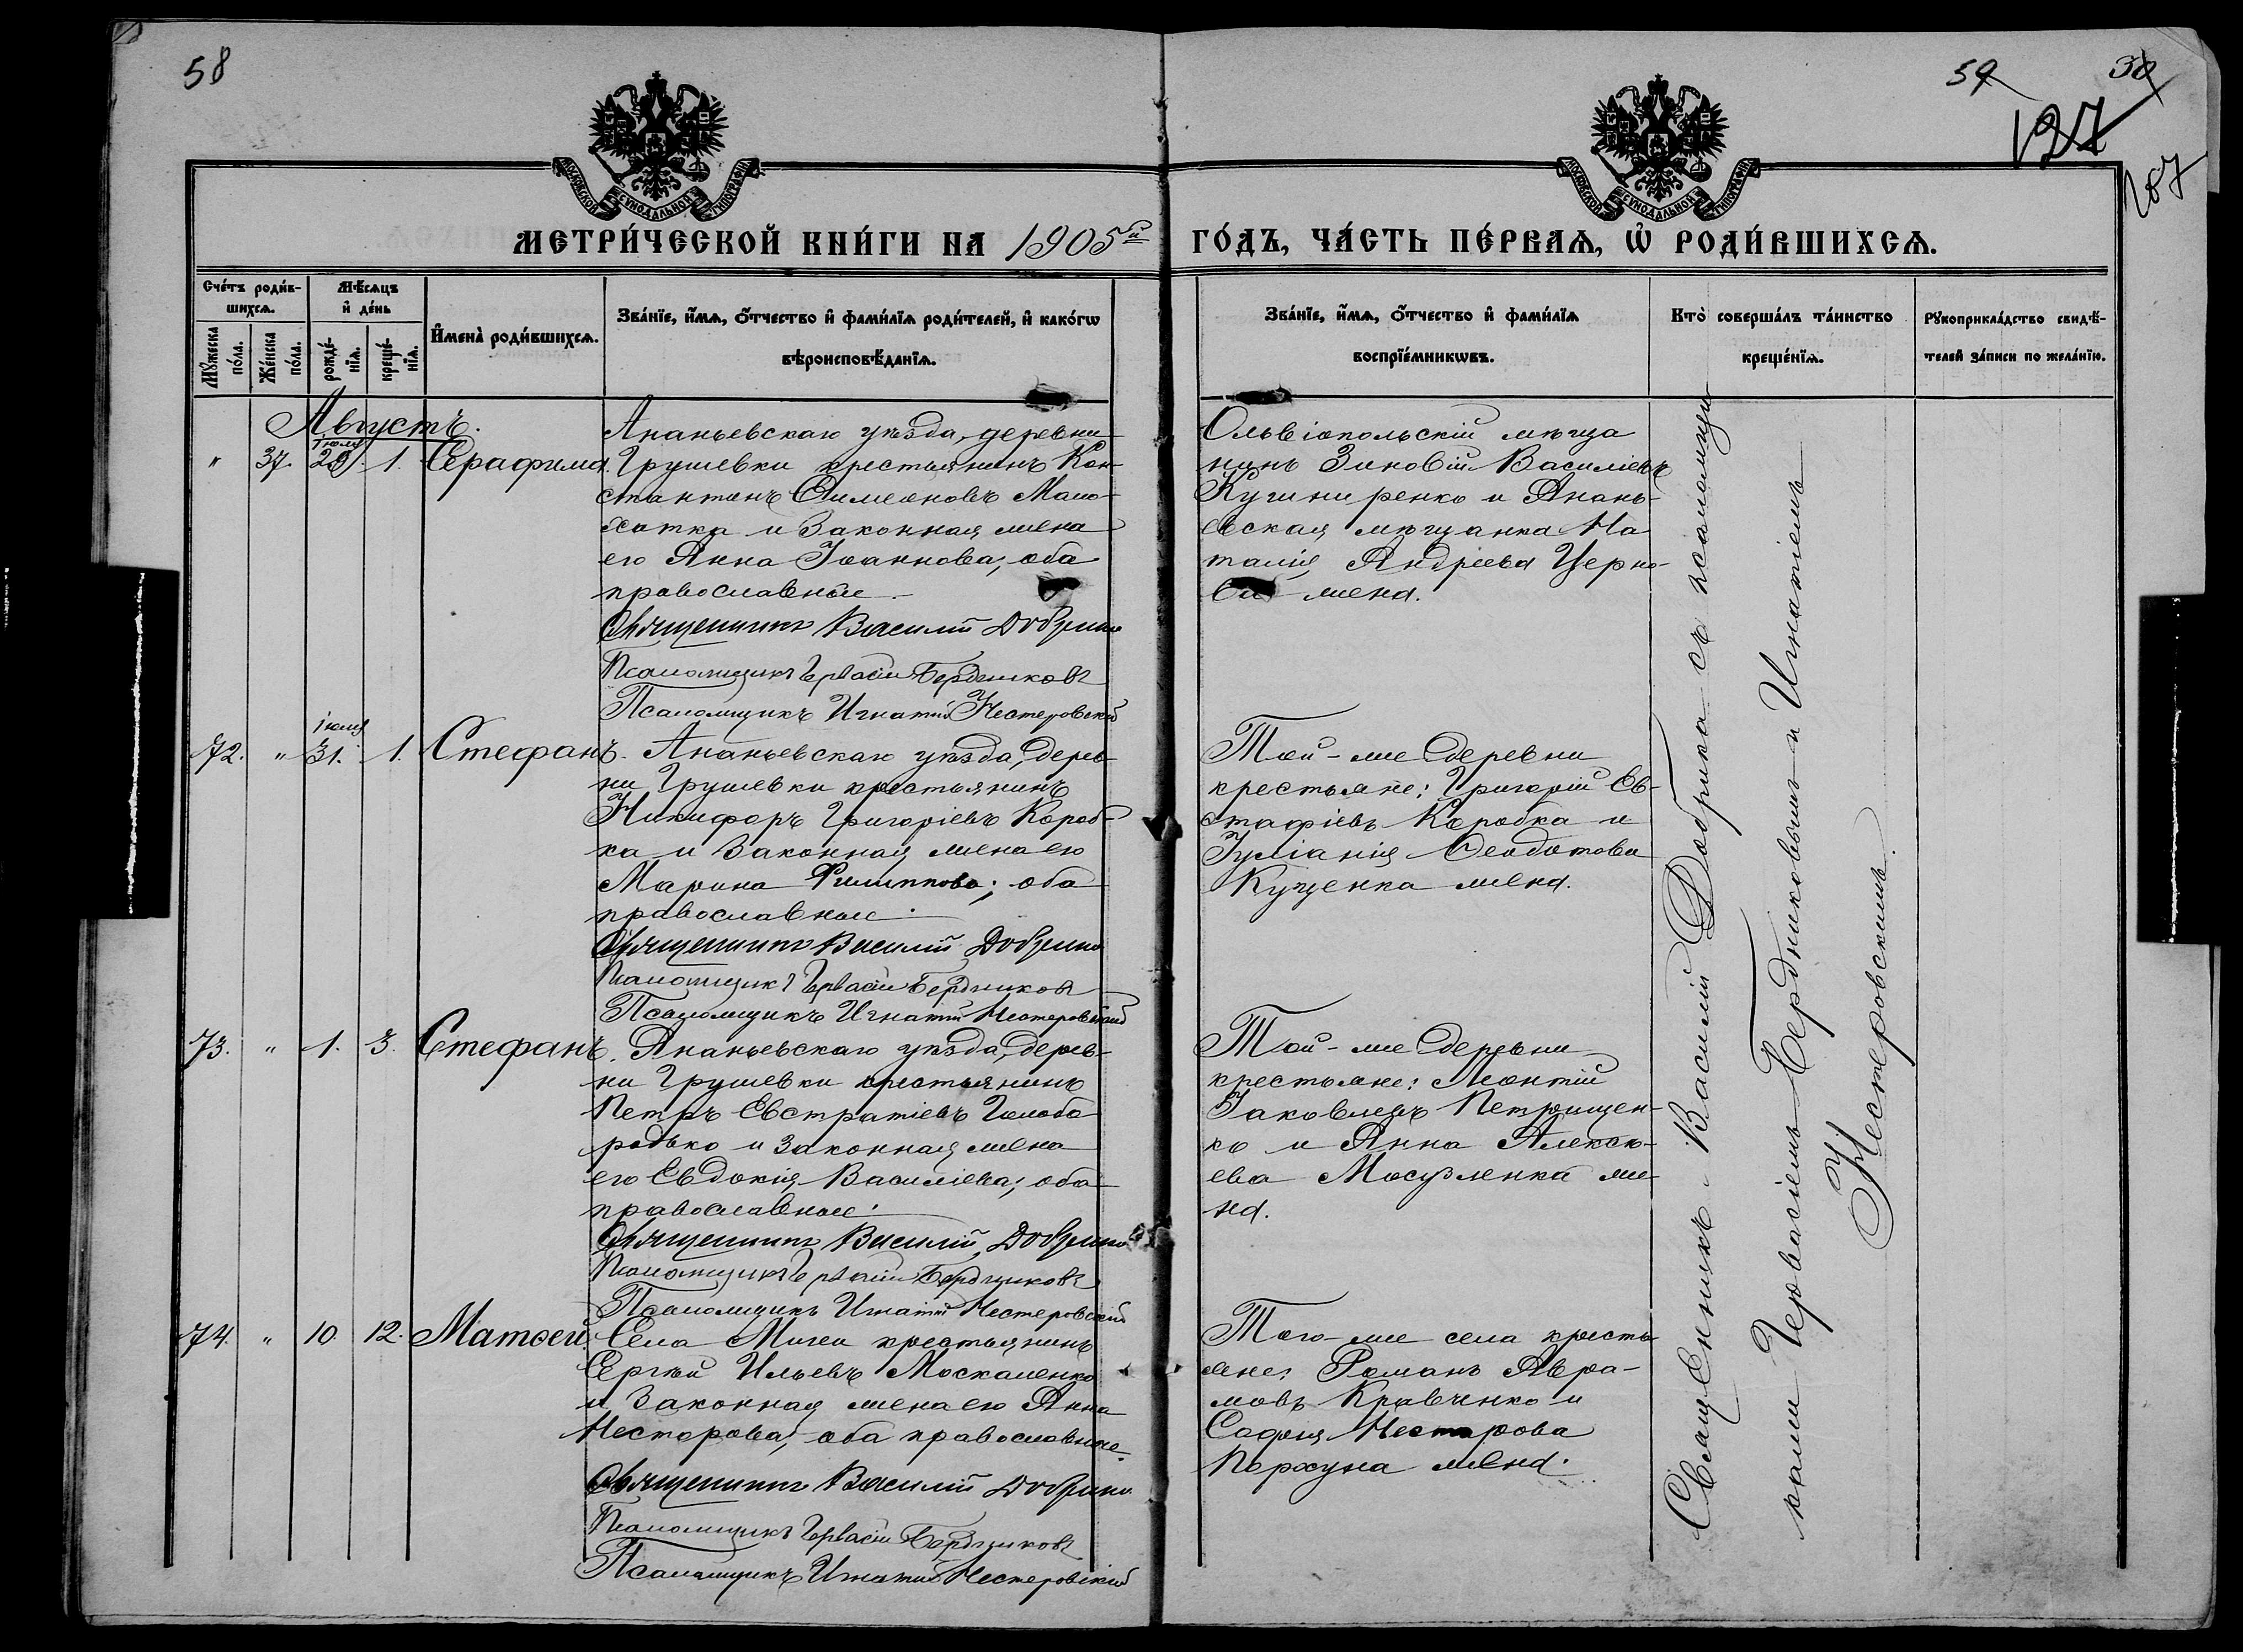 58
59
127
167
МОСКОВСКОЙ СУНОДАЛЬНОЙ ТИПОГРАФІИ
МОСКОВСКОЙ СУНОДАЛЬНОЙ ТИПОГРАФІИ
МЕТРИ́ЧЕСКОЙ КНИ́ГИ НА 1905й ГО́ДЪ, ЧА́СТЬ ПЕ́РВАѦ, Ѡ҆ РОДИ́ВШИХСѦ.
Сче́тъ роди́в-
шихсѧ.
Мѣ́сѧцъ
и҆ де́нь
Мꙋжеска по́ла.
Же́нска по́ла.
рожде́-
нїѧ.
креще́-
нїѧ.
И҆мена̀ роди́вшихсѧ.
Зва́нїе, и҆́мѧ, ѻ҆́тчество и҆ фами́лїѧ роди́телей, и҆ како́гѡ
вѣроисповѣ́данїѧ.
Зва́нїе, и҆́мѧ, ѻ҆́тчество и҆ фами́лїѧ
воспрїе́мникѡвъ.
Кто̀ соверша́лъ та́инство
креще́нїѧ.
Рꙋкоприкла́дство свидѣ́-
телей за́писи по жела́нїю.
Августъ.
" 37. Іюля 29. 1. Серафима.
Ананьевскаго уѣзда, деревни
Грушевки крестьянинъ Кон-
стантинъ Симеоновъ Мало-
хатка и законная жена
его Анна Іоаннова, оба
православные
Священникъ Василій Добрика
Псаломщикъ Гервасій Бердниковъ
Псаломщикъ Игнатій Нестеровскій
Ольвіопольскій мѣща
нинъ Зиновій Василіевъ
Кушниренко и Анань-
евская мѣщанка На
талія Андреева Церно-
жена.
72. " Іюля 31. 1. Стефанъ.
Ананьевскаго уѣзда, дерев-
ни Грушевки крестьянинъ
Никифоръ Григоріевъ Короб-
ка и законная жена его
Марина Филиппова; оба
православные.
Священникъ Василій Добрика
Псаломщикъ Гервасій Бердниковъ
Псаломщикъ Игнатій Нестеровскій
Той-же деревни
крестьяне: Григорій Ев-
стафіевъ Коробка и
Іуліанія Ѳеодотова
Куценка жена.
73. " 1. 3. Стефанъ.
Ананьевскаго уѣзда, дерев-
ни Грушевки крестьянинъ
Петръ Евстратіевъ Голобо
родько и законная жена
его Евдокія Василіева; оба
православные.
Священникъ Василій Добрика
Псаломщикъ Гервасій Бердниковъ
Псаломщикъ Игнатій Нестеровскій
Той-же деревни
крестьяне: Леонтій
Іаковлевъ Петрищен-
ко и Анна Алексѣ-
ева же-
на.
74. " 10. 12. Матѳей.
Села Мигеи крестьянинъ
Сергѣй Ильевъ Москаленко
и законная жена его Анна
Несторова, оба православные.
Священникъ Василій Добрика
Псаломщикъ Гервасій Бердниковъ
Псаломщикъ Игнатій Нестеровскій
Того-же села кресть-
яне: Романъ Авра-
мовъ Кравченко и
Софія Несторова
Порхуна жена.
Священникъ Василій Добрика съ псаломщи
ками Гервасіемъ Бердниковымъ и Игнатіемъ
Нестеровскимъ.